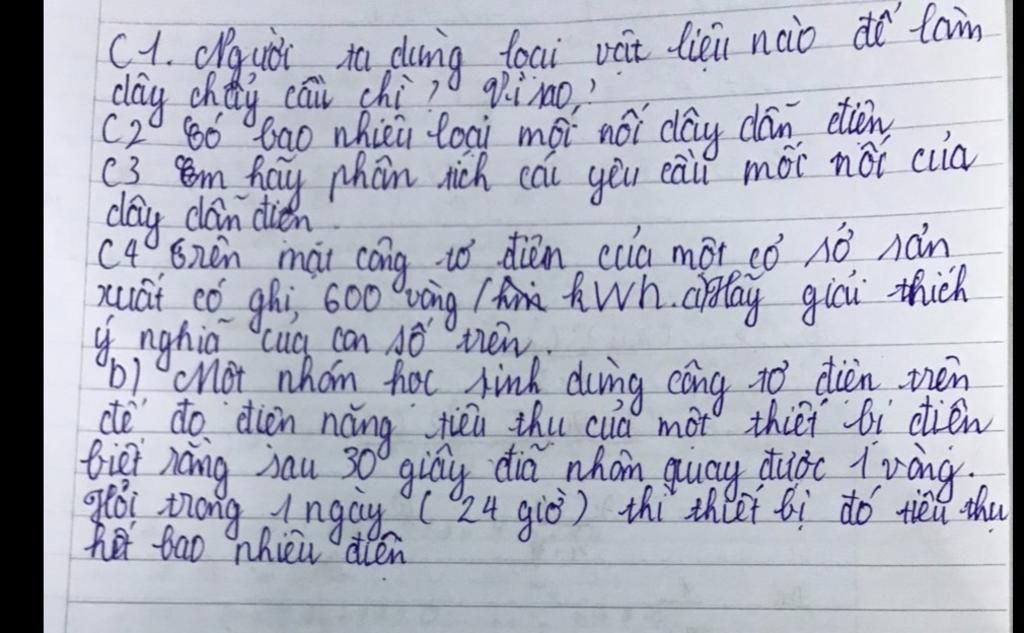 C1. Người ta dùng loại vật liệu nào để làm
dây chảy cầu chì? Vì sao?
C2 Có bao nhiêu loại mối nối dây dẫn điện
C3 Em hãy phân tích cái yêu cầu mối nối của
dây dẫn điện.
C4 Trên mặt công tơ điện của một cơ sở sản
xuất có ghi, 600 vòng / kWh. a) Hãy giải thích
ý nghĩa của con số trên.
b) Một nhóm học sinh dùng công tơ điện trên
để đo điện năng tiêu thụ của một thiết bị điện
biết rằng sau 30 giây đĩa nhôm quay được 1 vòng.
Hỏi trong 1 ngày ( 24 giờ ) thì thiết bị đó tiêu thụ
hết bao nhiêu điện